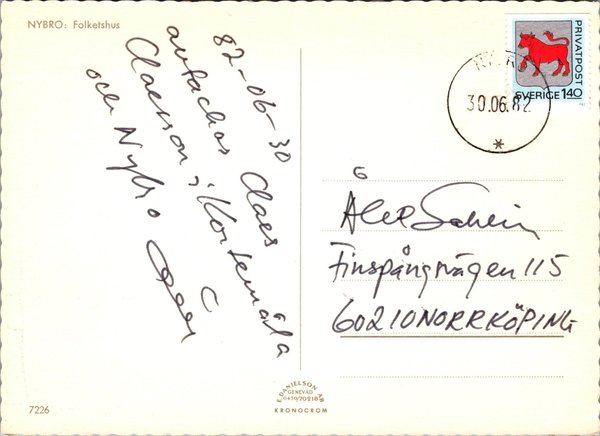 NYBRO: Folketshus
82-06-30
avtackas Claes
Claesson, i
och Nybro
PRIVATPOST
SVERIGE 140
30.06.82
*
Finspångsvägen 115
60210 NORRKÖPING
E. DANIELSON AB
GENEVAD
0430/70218
KRONOCROM
7226